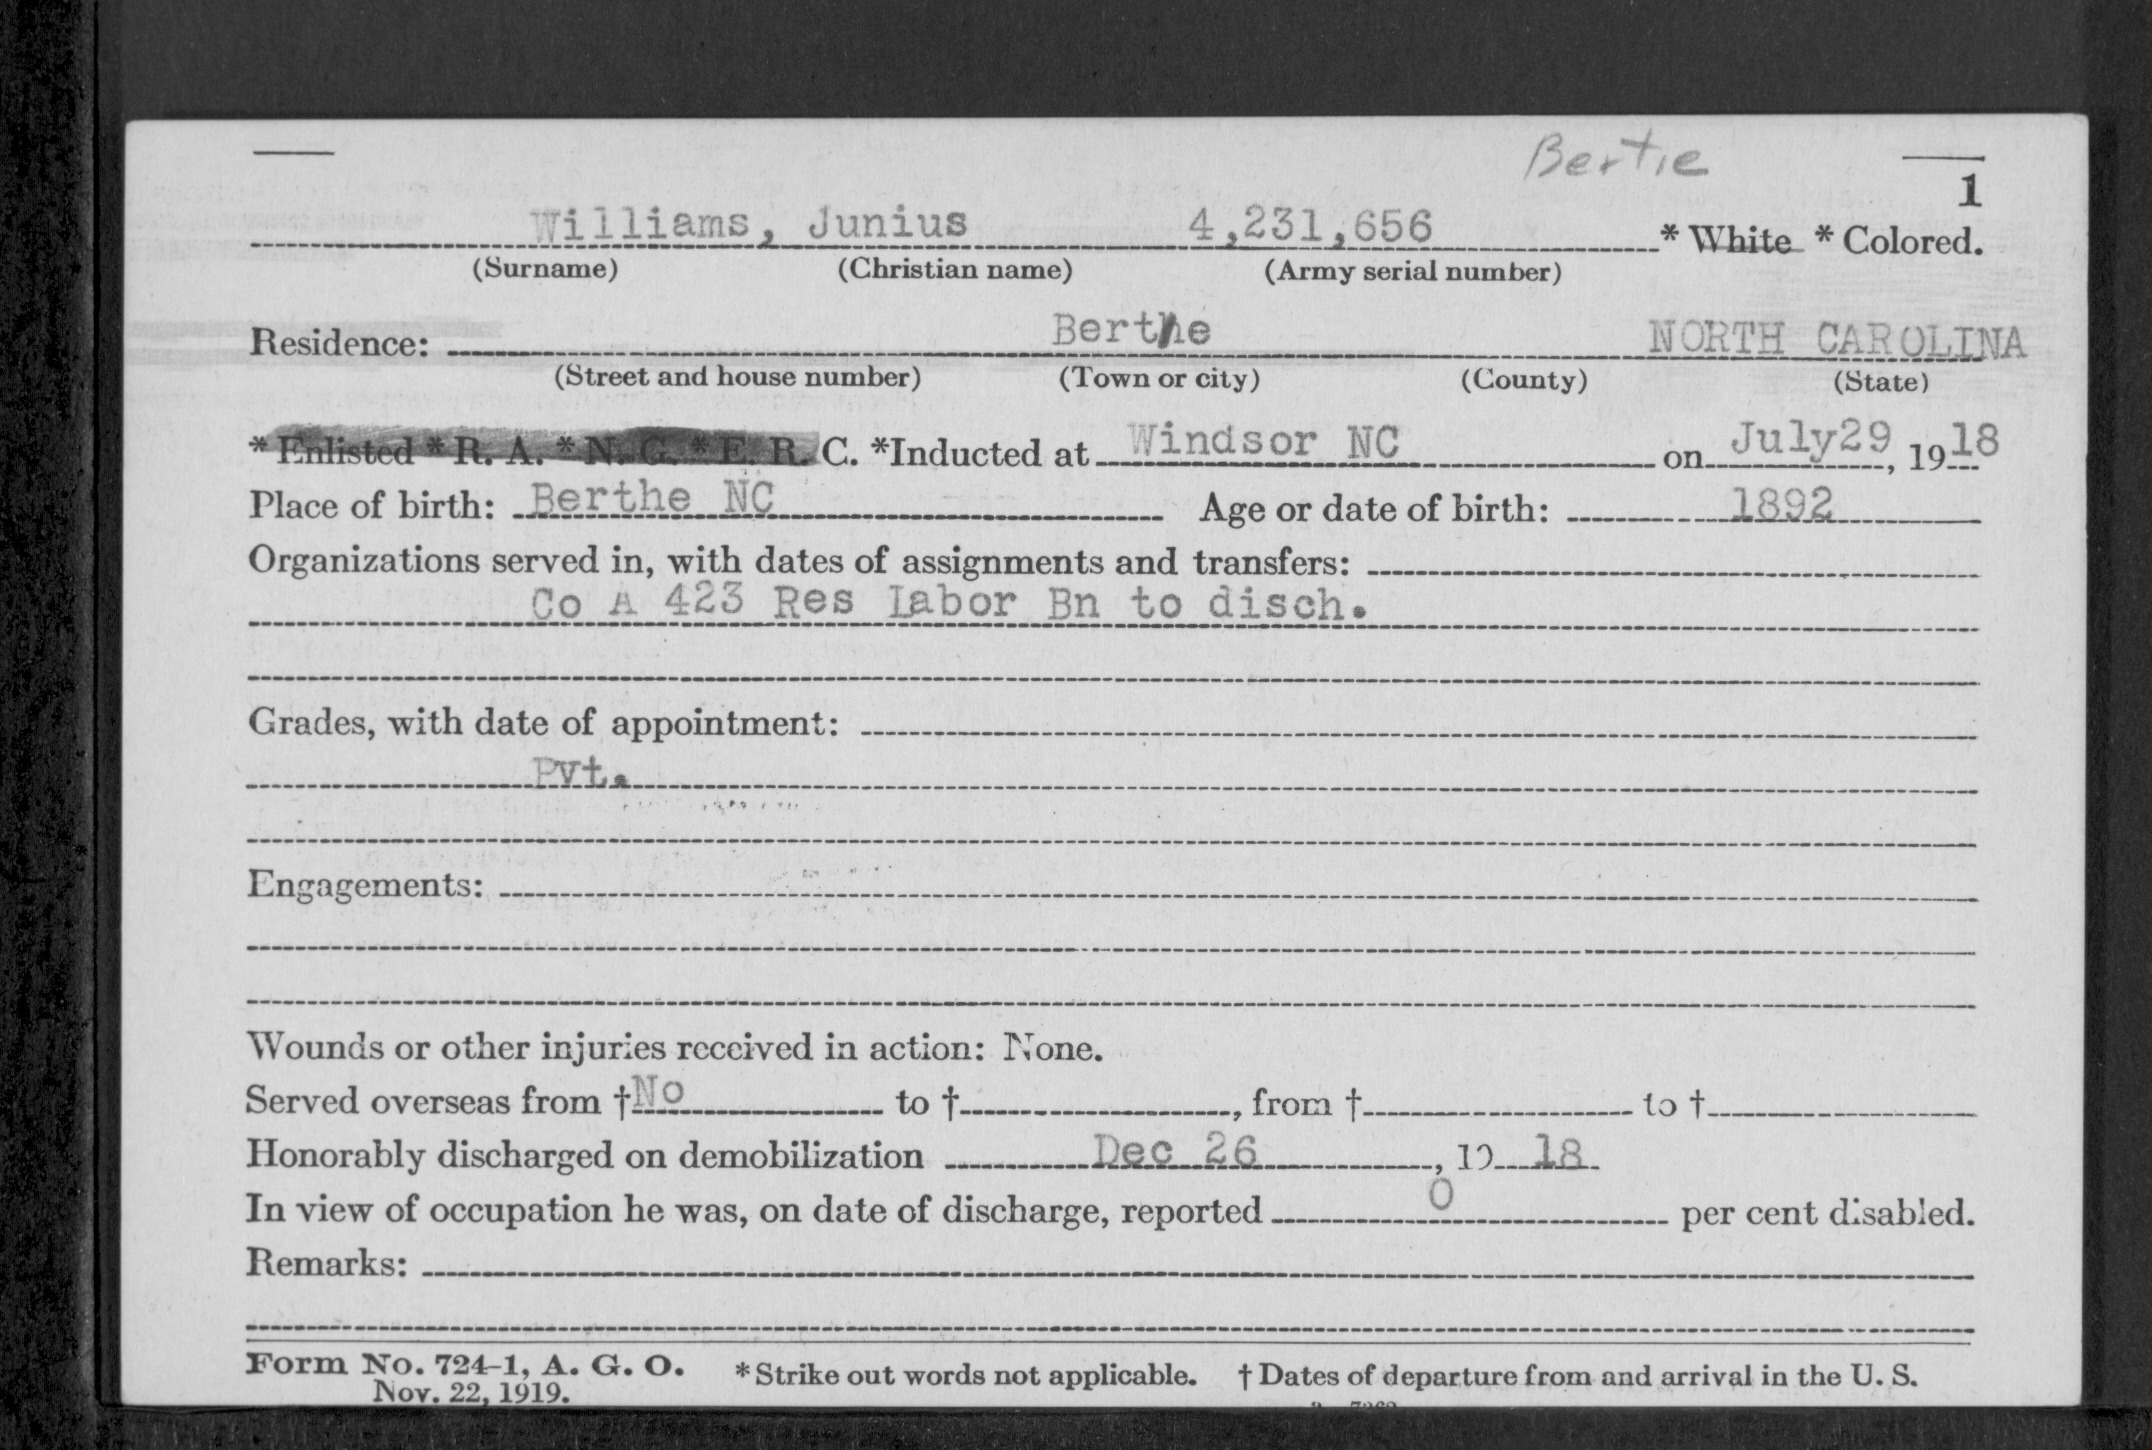 Bertie
1
Williams, Junius 4,231,656 * White * Colored.
(Surname) (Christian name) (Army serial number)
Residence: Berthe NORTH CAROLINA
(Street and house number) (Town or city) (County) (State)
* Enlisted * R. A. * N. G. * E. R. C. *Inducted at Windsor NC on July29, 1918
Place of birth: Berthe NC Age or date of birth: 1892
Organizations served in, with dates of assignments and transfers:
Co A 423 Res Labor Bn to disch.
Grades, with date of appointment:
Pvt.
Engagements:
Wounds or other injuries received in action: None.
Served overseas from †No to †, from † to †
Honorably discharged on demobilization Dec 26, 1918
In view of occupation he was, on date of discharge, reported 0 per cent disabled.
Remarks:
Form No. 724-1, A. G. O. *Strike out words not applicable. † Dates of departure from and arrival in the U. S.
Nov. 22, 1919.